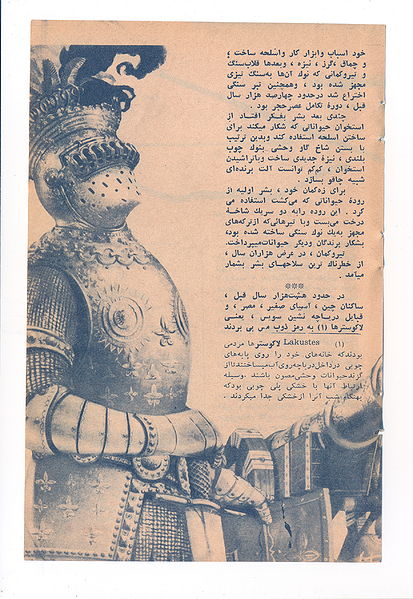 خود اسباب وابزار کار واسلحه ساخت ،
و چماق ،گرز ، نیزه ، وبعدها قلاب‌سنگ
و تیروکمانی که نوك آن‌ها به‌سنگ تیزی
مجهز شده بود ، وهمچنین تبر سنگی
اختراع شد درحدود چهارصد هزار سال
قبل ، دورهٔ تکامل عصرحجر بود .
چندی بعد بشر بفکر افتاد از
استخوان حیواناتی که شکار میکند برای
ساختن اسلحه استفاده کند وبدین ترتیب
با بستن شاخ گاو وحشی بنوك چوب
بلندی ، نیزهٔ جدیدی ساخت وباتراشیدن
استخوان ، کم‌کم توانست آلت برنده‌ای
شبیه چاقو بسازد .
برای زه‌کمان خود ، بشر اولیه از
رودهٔ حیواناتی که می‌کشت استفاده می
کرد . این روده رابه دو سریك شاخهٔ
درخت می‌بست وبا تیرهائی‌که ازترکه‌های
مجهز به‌یك نوك سنگی ساخته شده بود،
بشکار پرندگان ودیگر حیوانات‌میپرداخت.
تیروکمان ، در عرض هزاران سال ،
از خطرناك ترین سلاحهای بشر بشمار
میآمد .
***
در حدود هشت‌هزار سال قبل ،
ساکنان چین ، آسیای صغیر ، مصر ، و
قبایل دریاچه نشین سویس ، یعنی
لاکوسترها (۱) به رمز ذوب مس پی بردند
(۱) Lakustes لاکوسترها مردمی
بودندکه خانه‌های خود را روی پایه‌های
چوبی درداخل‌دریاچه‌روی‌آب‌میساختندتااز
گزندحیوانات وحشی‌مصون باشند .وسیله
ارتباط آنها با خشکی پلی چوبی بودکه
بهنگام شب آنرا ازخشکی جدا میکردند .